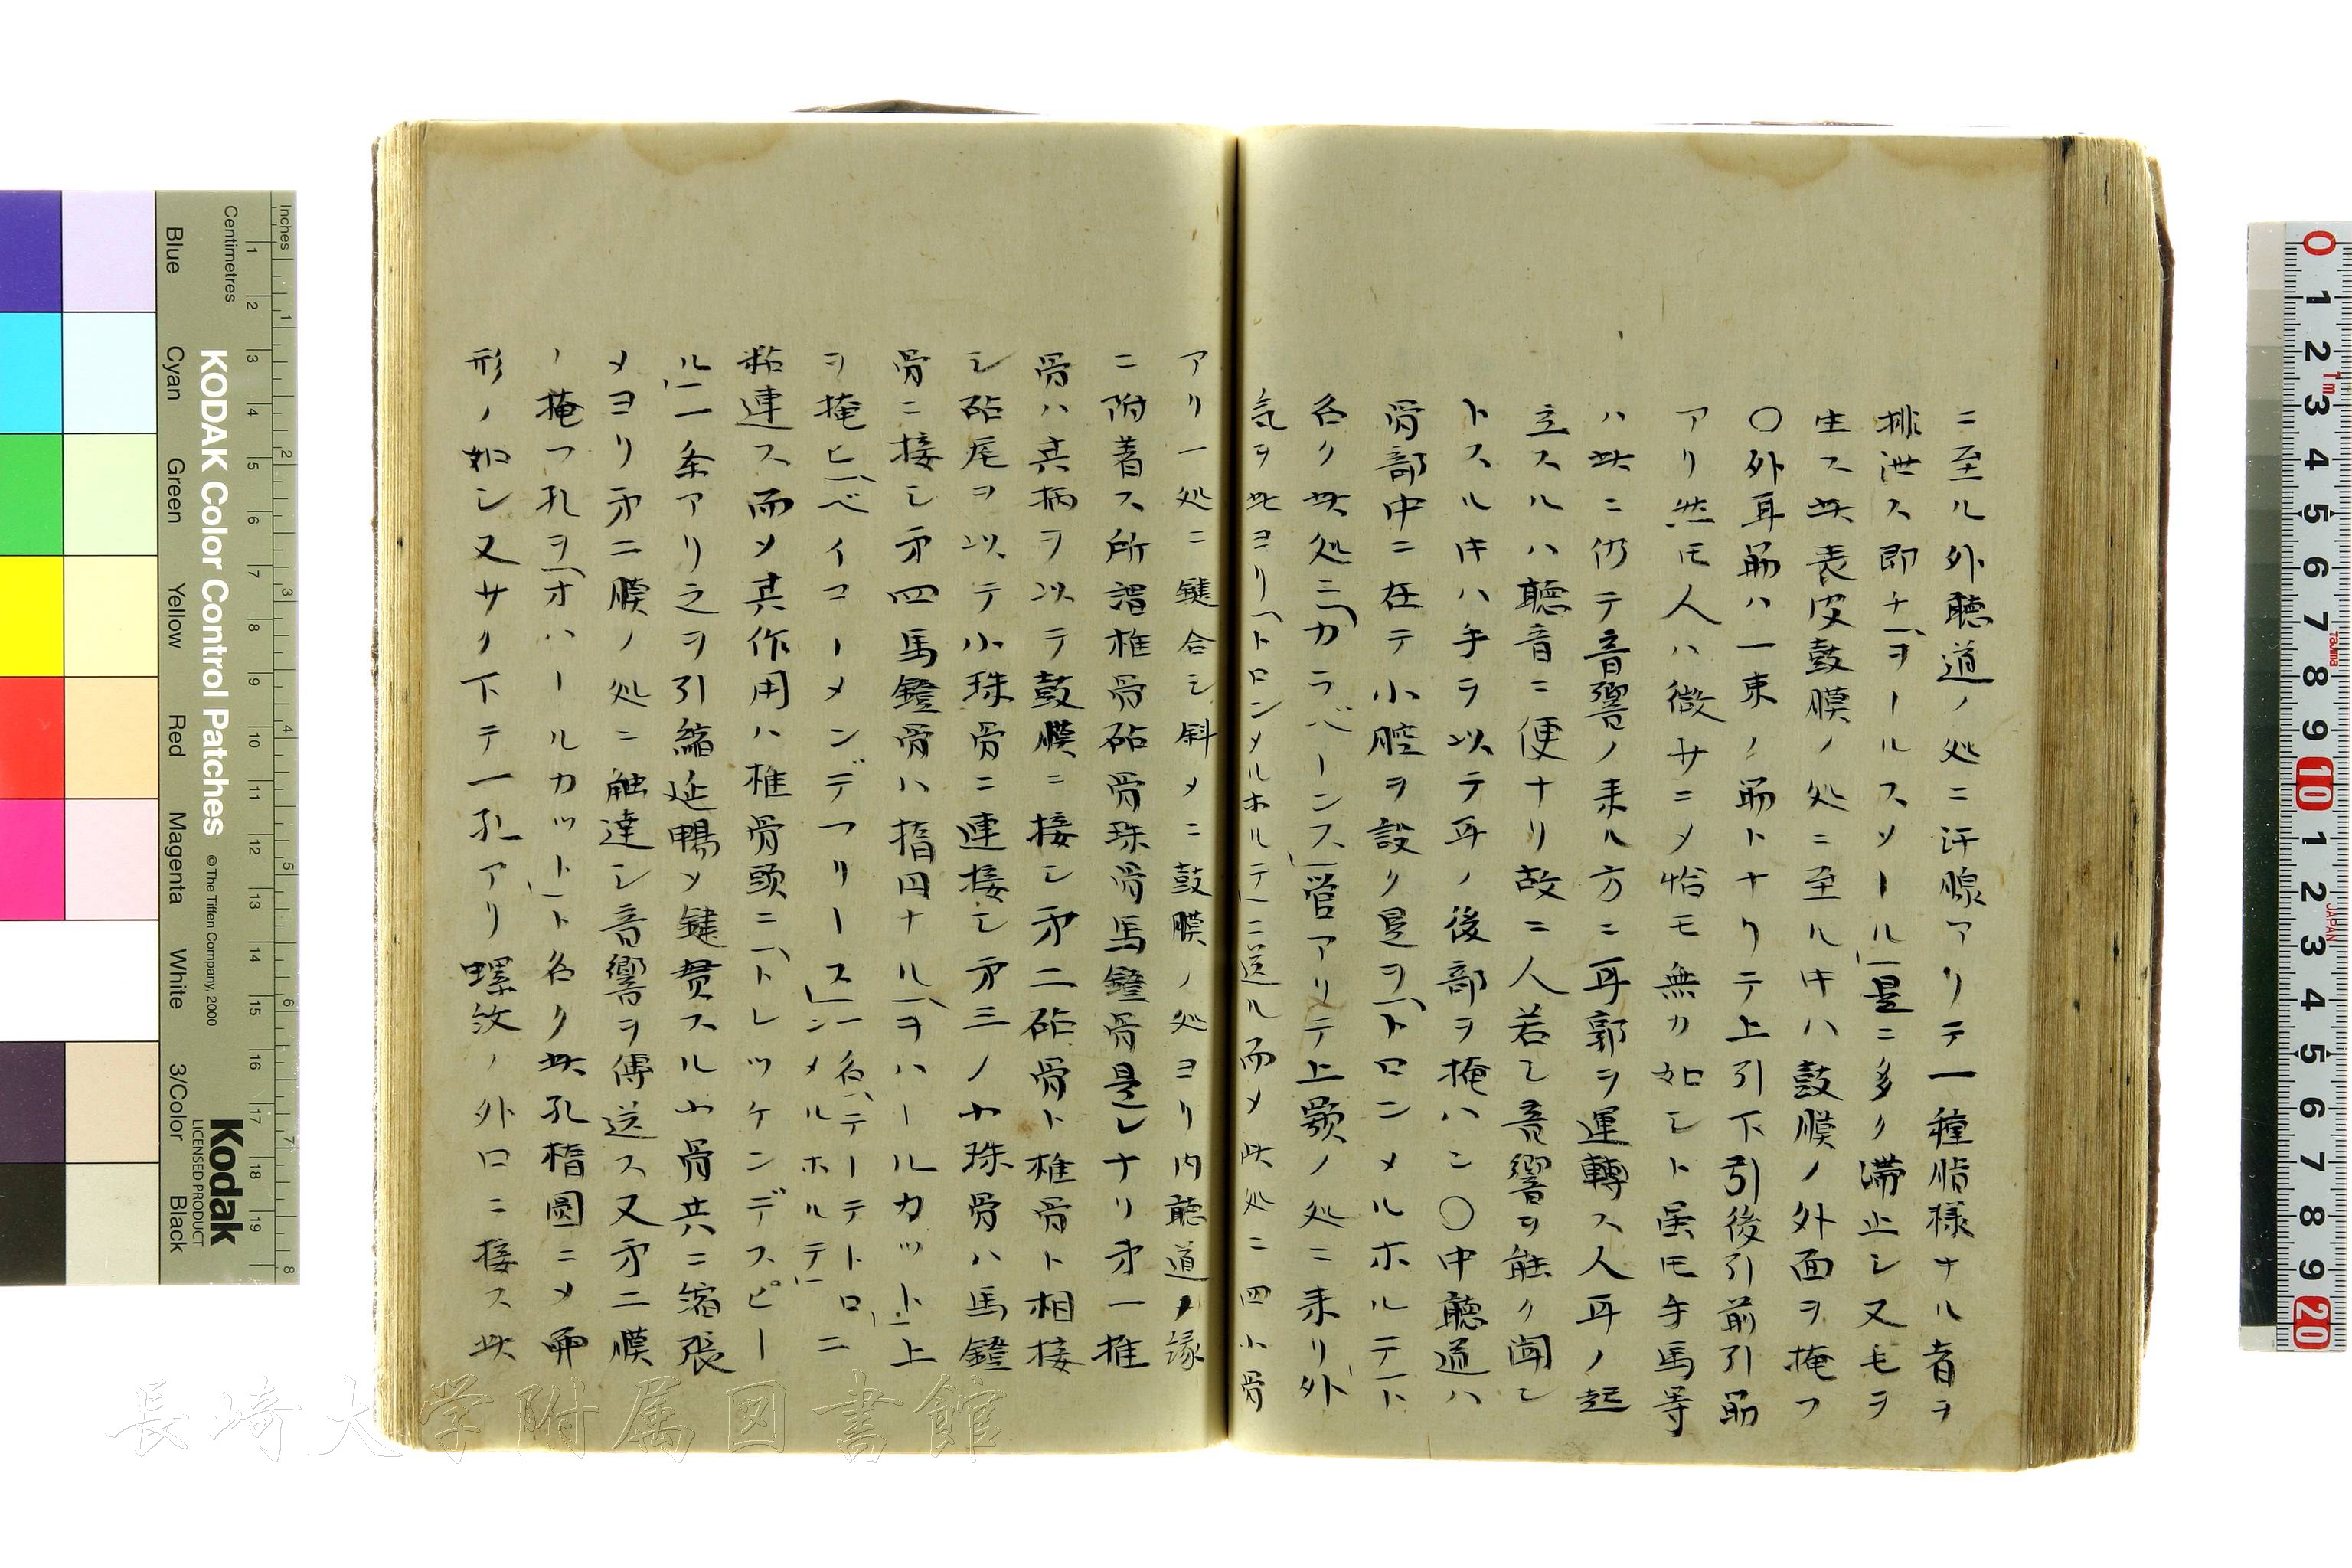 ニ至ル外聴道ノ処ニ汗腺アリテ一種脂様ナル者ヲ
排泄ス即チ「ヲールスソール」是ニ多ク滞止シ又毛ヲ
生ス此表皮鼓膜ノ処ニ至ル𪜈ハ鼓膜ノ外面ヲ掩フ
〇外耳筋ハ一束ノ筋トナクテ上引下引後引前引筋
アリ然𪜈人ハ微サニメ恰モ無カ如シト虽𪜈牛馬等
ハ此ニ仍テ音響ノ来ル方ニ耳郭ヲ運轉ス人耳ノ起
立スルハ聴音ニ便ナリ故ニ人若シ音響ヲ能ク聞ン
トスルキハ手ヲ以テ耳ノ後部ヲ掩ハン〇中聴道ハ
骨部中ニ在テ小腔ヲ設ク是ヲ「トロンメルホルテ」ト
名ク此処ニ「カラバーンス」管アリテ上顎ノ処ニ来リ外
気ヲ此ヨリ「トロンメルホルテ」ニ送ル而メ此処ニ四小骨
アリ一処ニ鍵合シ斜メニ鼓膜ノ処ヨリ内聴道ノ縁
ニ附着ス所謂椎骨砧骨珠骨馬鐙骨是レナリ才一椎
骨ハ其柄ヲ以テ鼓膜ニ接シ才二砧骨ト椎骨ト相接
シ砧尾ヲ以テ小珠骨ニ連接シ才三ノ小珠骨ハ馬鐙
骨ニ接シ才四馬鐙骨ハ楕円ナル「ヲハールカット」上
ヲ掩ヒ「ベイコーメンデフリース」一名「テーテトロ
ンメルホルテ」ニ
粘連ス而メ其作用ハ椎骨頭ニ「トレッケンデスピー
ル」一条アリ之ヲ引縮延暢メ鍵貫スル小骨共ニ縮張
メヨリ才二膜ノ処ニ触達シ音響ヲ傳送ス又才二膜
ノ掩フ孔ヲ「オハールカット」ト名ク此孔楕圓ニメ卵
形ノ如シ又サク下テ一孔アリ螺紋ノ外口ニ接ス此
KODAK Color Control Patches
© The Tiffen Company, 2000
Kodak
LICENSED PRODUCT
Inches
Centimetres
Blue
Cyan
Green
Yellow
Red
Magenta
White
3/Color
Black
長崎大学附属図書館